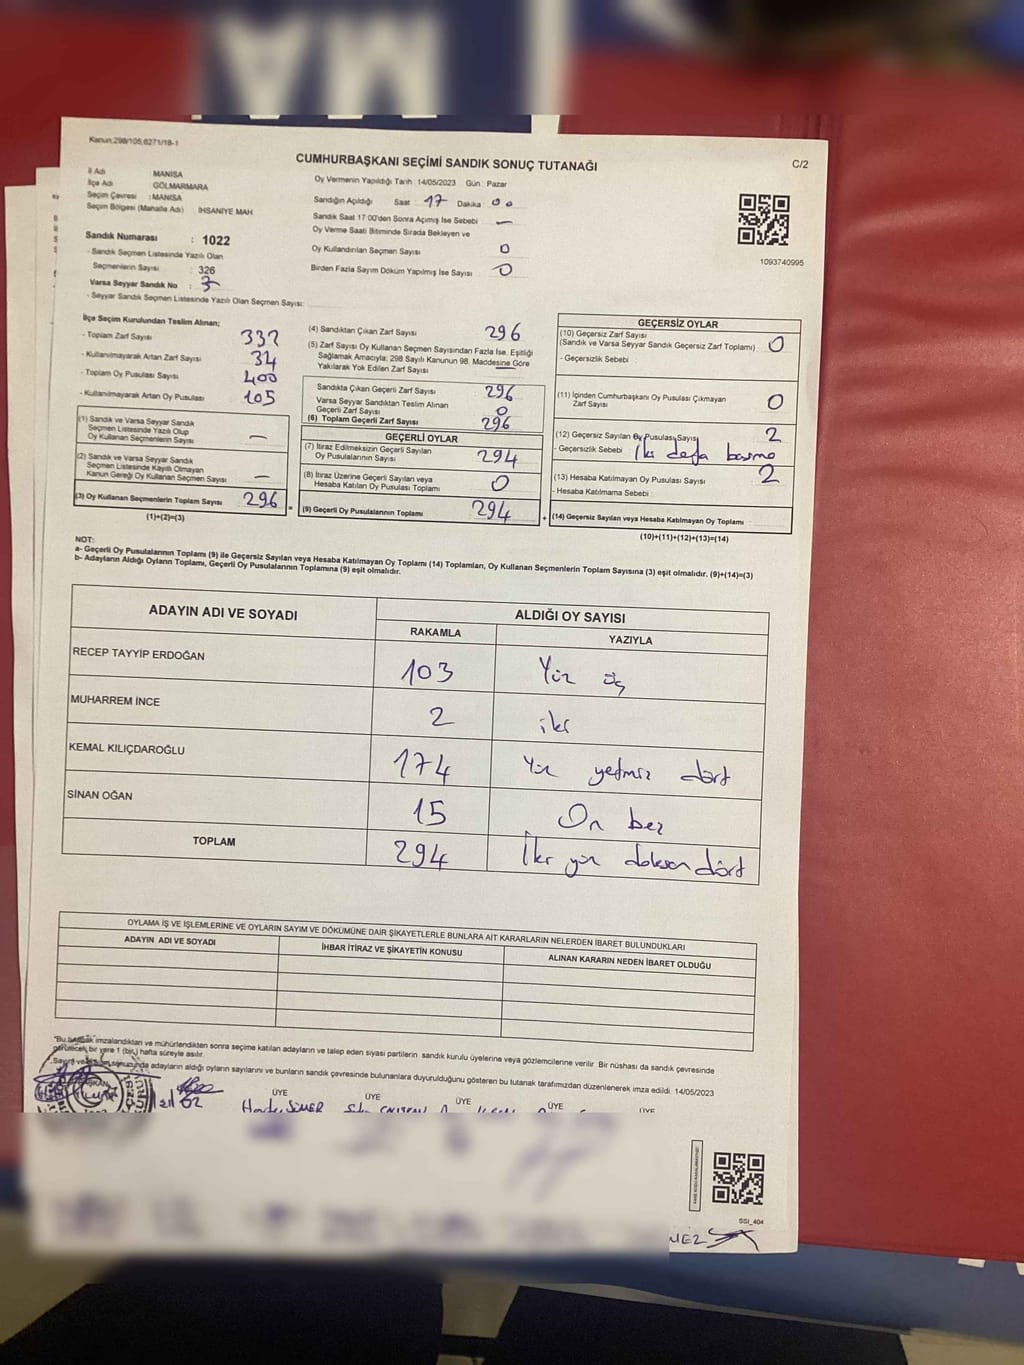 MA
Kanun;298/105;6271/18-1
CUMHURBAŞKANI SEÇİMİ SANDIK SONUÇ TUTANAĞI
C/2
İl Adı MANİSA
İlçe Adı GÖLMARMARA
Seçim Çevresi : MANİSA
Seçim Bölgesi (Mahalle Adı) : İHSANİYE MAH
Sandık Numarası : 1022
- Sandık Seçmen Listesinde Yazılı Olan
Seçmenlerin Sayısı : 326
Varsa Seyyar Sandık No :
- Seyyar Sandık Seçmen Listesinde Yazılı Olan Seçmen Sayısı:
Oy Vermenin Yapıldığı Tarih : 14/05/2023 Gün : Pazar
Sandığın Açıldığı Saat 17 Dakika 00
Sandık Saat 17:00'den Sonra Açılmış İse Sebebi —
Oy Verme Saati Bitiminde Sırada Bekleyen ve
Oy Kullandırılan Seçmen Sayısı 0
Birden Fazla Sayım Döküm Yapılmış İse Sayısı 0
1093740995
İlçe Seçim Kurulundan Teslim Alınan;
- Toplam Zarf Sayısı 332
- Kullanılmayarak Artan Zarf Sayısı 34
- Toplam Oy Pusulası Sayısı 400
- Kullanılmayarak Artan Oy Pusulası 105
(1) Sandık ve Varsa Seyyar Sandık
Seçmen Listesinde Yazılı Olup
Oy Kullanan Seçmenlerin Sayısı —
(2) Sandık ve Varsa Seyyar Sandık
Seçmen Listesinde Kayıtlı Olmayan
Kanun Gereği Oy Kullanan Seçmen Sayısı —
(3) Oy Kullanan Seçmenlerin Toplam Sayısı 296
(1)+(2)=(3)
(4) Sandıktan Çıkan Zarf Sayısı 296
(5) Zarf Sayısı Oy Kullanan Seçmen Sayısından Fazla İse, Eşitliği
Sağlamak Amacıyla; 298 Sayılı Kanunun 98. Maddesine Göre
Yakılarak Yok Edilen Zarf Sayısı —
Sandıkta Çıkan Geçerli Zarf Sayısı 296
Varsa Seyyar Sandıktan Teslim Alınan
Geçerli Zarf Sayısı 0
(6) Toplam Geçerli Zarf Sayısı 296
GEÇERLİ OYLAR
(7) İtiraz Edilmeksizin Geçerli Sayılan
Oy Pusulalarının Sayısı 294
(8) İtiraz Üzerine Geçerli Sayılan veya
Hesaba Katılan Oy Pusulası Toplamı 0
(9) Geçerli Oy Pusulalarının Toplamı 294
GEÇERSİZ OYLAR
(10) Geçersiz Zarf Sayısı
(Sandık ve Varsa Seyyar Sandık Geçersiz Zarf Toplamı) 0
- Geçersizlik Sebebi
(11) İçinden Cumhurbaşkanı Oy Pusulası Çıkmayan
Zarf Sayısı 0
(12) Geçersiz Sayılan Oy Pusulası Sayısı 2
- Geçersizlik Sebebi İki defa basma
(13) Hesaba Katılmayan Oy Pusulası Sayısı 2
- Hesaba Katılmama Sebebi
(14) Geçersiz Sayılan veya Hesaba Katılmayan Oy Toplamı
(10)+(11)+(12)+(13)=(14)
NOT:
a- Geçerli Oy Pusulalarının Toplamı (9) ile Geçersiz Sayılan veya Hesaba Katılmayan Oy Toplamı (14) Toplamları, Oy Kullanan Seçmenlerin Toplam Sayısına (3) eşit olmalıdır. (9)+(14)=(3)
b- Adayların Aldığı Oyların Toplamı, Geçerli Oy Pusulalarının Toplamına (9) eşit olmalıdır.
ADAYIN ADI VE SOYADI ALDIĞI OY SAYISI
RAKAMLA YAZIYLA
RECEP TAYYİP ERDOĞAN 103 Yüz üç
MUHARREM İNCE 2 iki
KEMAL KILIÇDAROĞLU 174 Yüz yetmiz dört
SİNAN OĞAN 15 On bez
TOPLAM 294 İki yüz doksan dört
OYLAMA İŞ VE İŞLEMLERİNE VE OYLARIN SAYIM VE DÖKÜMÜNE DAİR ŞİKAYETLERLE BUNLARA AİT KARARLARIN NELERDEN İBARET BULUNDUKLARI
ADAYIN ADI VE SOYADI İHBAR İTİRAZ VE ŞİKAYETİN KONUSU ALINAN KARARIN NEDEN İBARET OLDUĞU
imzalandıktan ve mühürlendikten sonra seçime katılan adayların ve talep eden siyasi partilerin sandık kurulu üyelerine veya gözlemcilerine verilir. Bir nüshası da sandık çevresinde
görülecek bir yere 1 (bir) hafta süreyle asılır.
sonucunda adayların aldığı oyların sayılarını ve bunların sandık çevresinde bulunanlara duyurulduğunu gösteren bu tutanak tarafımızdan düzenlenerek imza edildi. 14/05/2023
BAŞKAN ÜYE ÜYE ÜYE ÜYE ÜYE
SSI_404